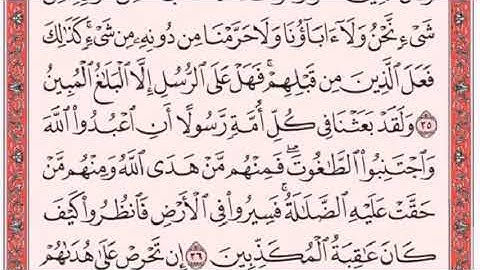 شَىْءٍ نَّحْنُ وَلَآ ءَابَآؤُنَا وَلَا حَرَّمْنَا مِن دُونِهِۦ مِن شَىْءٍ ۚ كَذَٰلِكَ
فَعَلَ ٱلَّذِينَ مِن قَبْلِهِمْ ۚ فَهَلْ عَلَى ٱلرُّسُلِ إِلَّا ٱلْبَلَٰغُ ٱلْمُبِينُ
٣٥ وَلَقَدْ بَعَثْنَا فِى كُلِّ أُمَّةٍ رَّسُولًا أَنِ ٱعْبُدُوا۟ ٱللَّهَ
وَٱجْتَنِبُوا۟ ٱلطَّٰغُوتَ ۖ فَمِنْهُم مَّنْ هَدَى ٱللَّهُ وَمِنْهُم مَّنْ
حَقَّتْ عَلَيْهِ ٱلضَّلَٰلَةُ ۚ فَسِيرُوا۟ فِى ٱلْأَرْضِ فَٱنظُرُوا۟ كَيْفَ
كَانَ عَٰقِبَةُ ٱلْمُكَذِّبِينَ ٣٦ إِن تَحْرِصْ عَلَىٰ هُدَىٰهُمْ